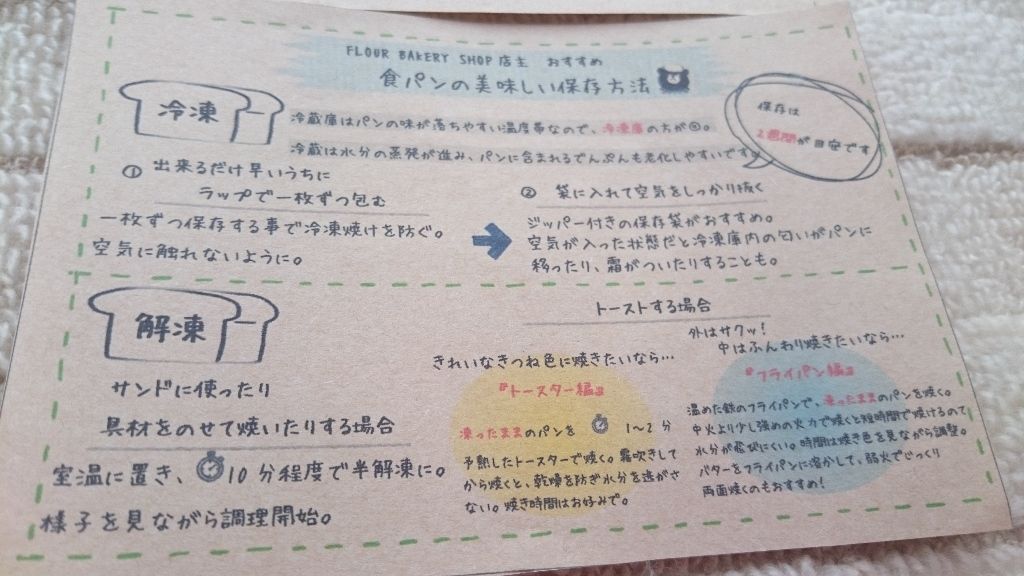 FLOUR BAKERY SHOP 店主 おすすめ
食パンの美味しい保存方法
保存は
2週間が目安です
冷凍
冷蔵庫はパンの味が落ちやすい温度帯なので、冷凍庫の方が◎。
冷蔵は水分の蒸発が進み、パンに含まれるでんぷんも老化しやすいです
① 出来るだけ早いうちに
ラップで一枚ずつ包む
一枚ずつ保存する事で冷凍焼けを防ぐ。
空気に触れないように。
② 袋に入れて空気をしっかり抜く
ジッパー付きの保存袋がおすすめ。
空気が入った状態だと冷凍庫内の匂いがパンに
移ったり、霜がついたりすることも。
解凍
サンドに使ったり
具材をのせて焼いたりする場合
室温に置き、10分程度で半解凍に。
様子を見ながら調理開始。
トーストする場合
きれいなきつね色に焼きたいなら…
『トースター編』
凍ったままのパンを 1〜2分
予熱したトースターで焼く。霧吹きして
から焼くと、乾燥を防ぎ水分を逃がさ
ない。焼き時間はお好みで。
外はサクッ!
中はふんわり焼きたいなら…
『フライパン編』
温めた鉄のフライパンで、凍ったままのパンを焼く。
中火より少し強めの火力で焼くと短時間で焼けるので
水分が飛びにくい。時間は焼き色を見ながら調整。
バターをフライパンに溶かして、弱火でじっくり
両面焼くのもおすすめ!